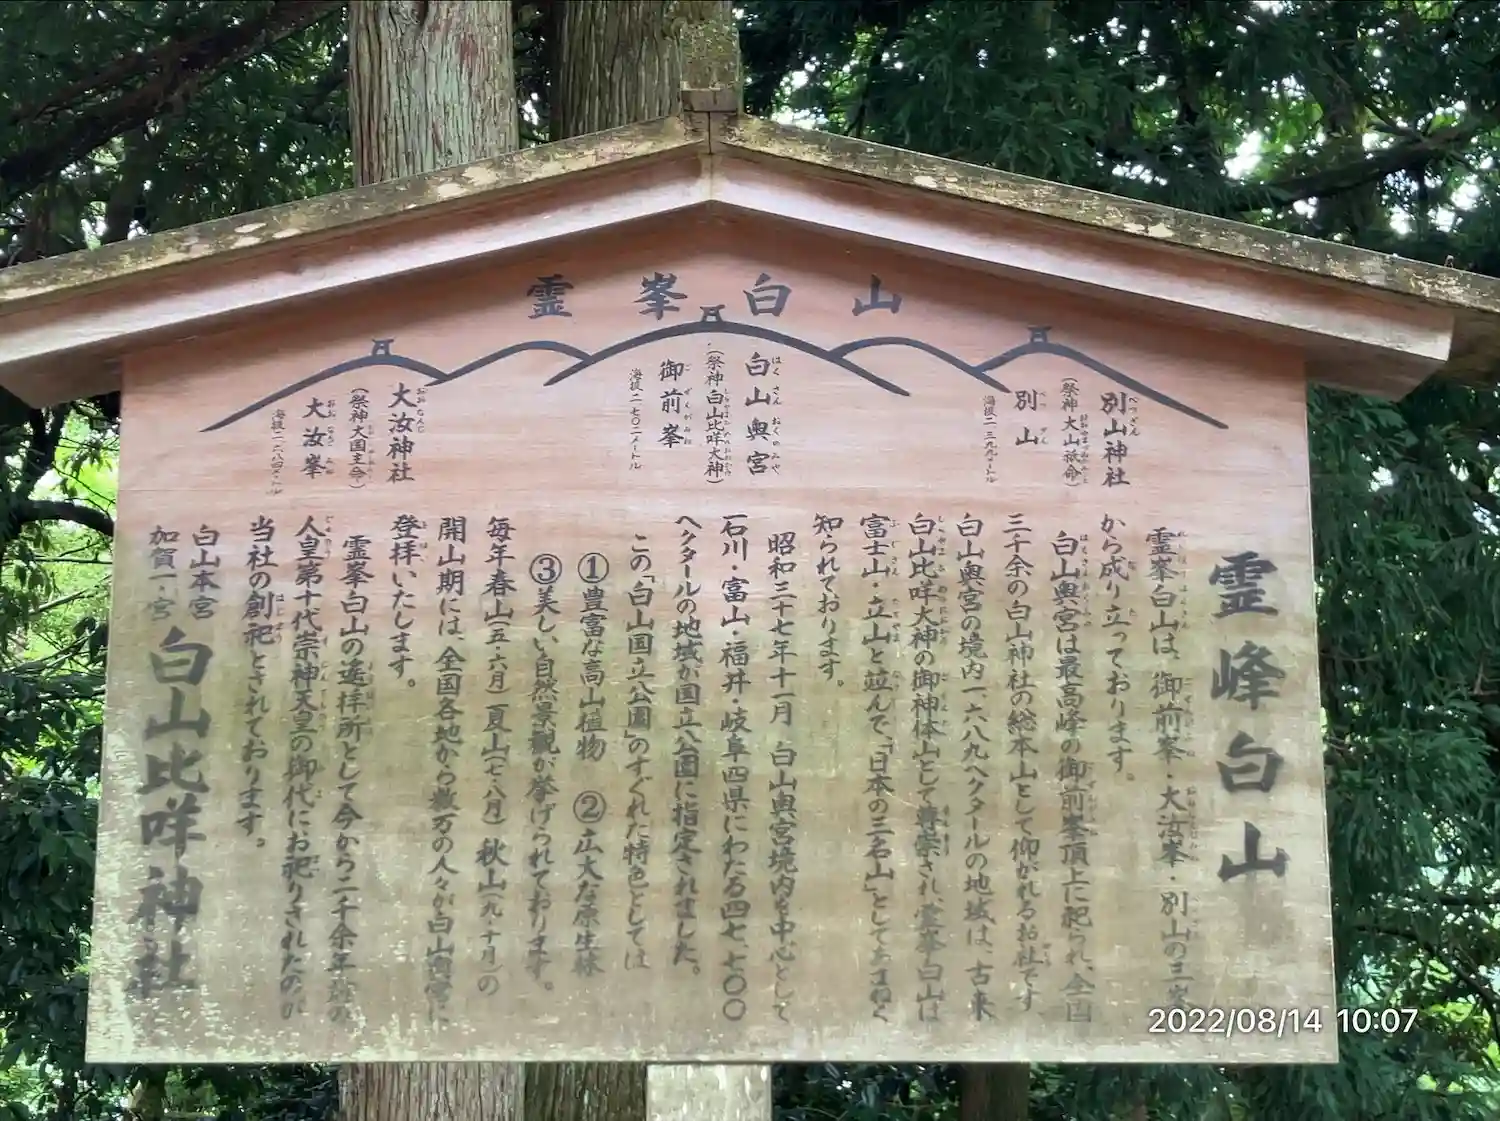 霊峯白山
別山神社
(祭神 大山祇命)
別山
海抜二三九九メートル
白山奥宮
(祭神白山比咩大神)
御前峯
海抜二七〇二メートル
大汝神社
(祭神大国主命)
大汝峯
海抜二六八四メートル
霊峰白山
霊峯白山は、御前峯・大汝峯・別山の三峯
から成り立っております。
白山奥宮は最高峰の御前峯頂上に祀られ、全国
三千余の白山神社の総本山として仰がれるお社です
白山奥宮の境内一、六八九ヘクタールの地域は、古来
白山比咩大神の御神体山として尊崇され、霊峯白山は
富士山・立山と竝んで、「日本の三名山」としてあまねく
知られております。
昭和三十七年十一月 白山奥宮境内を中心として
石川・富山・福井・岐阜四県にわたる四七、七〇〇
ヘクタールの地域が国立公園に指定されました。
この「白山国立公園」のすぐれた特色としては
①豊富な高山植物 ②広大な原生林
③美しい自然景観が挙げられております。
毎年春山(五・六月)夏山(七・八月)秋山(九・十月)の
開山期には、全国各地から数万の人々が白山奥宮に
登拝いたします。
霊峯白山の遙拝所として今から二千余年前の
人皇第十代崇神天皇の御代にお祀りされたのが
当社の創祀とされております。
白山本宮
加賀一ノ宮
白山比咩神社
2022/08/14 10:07